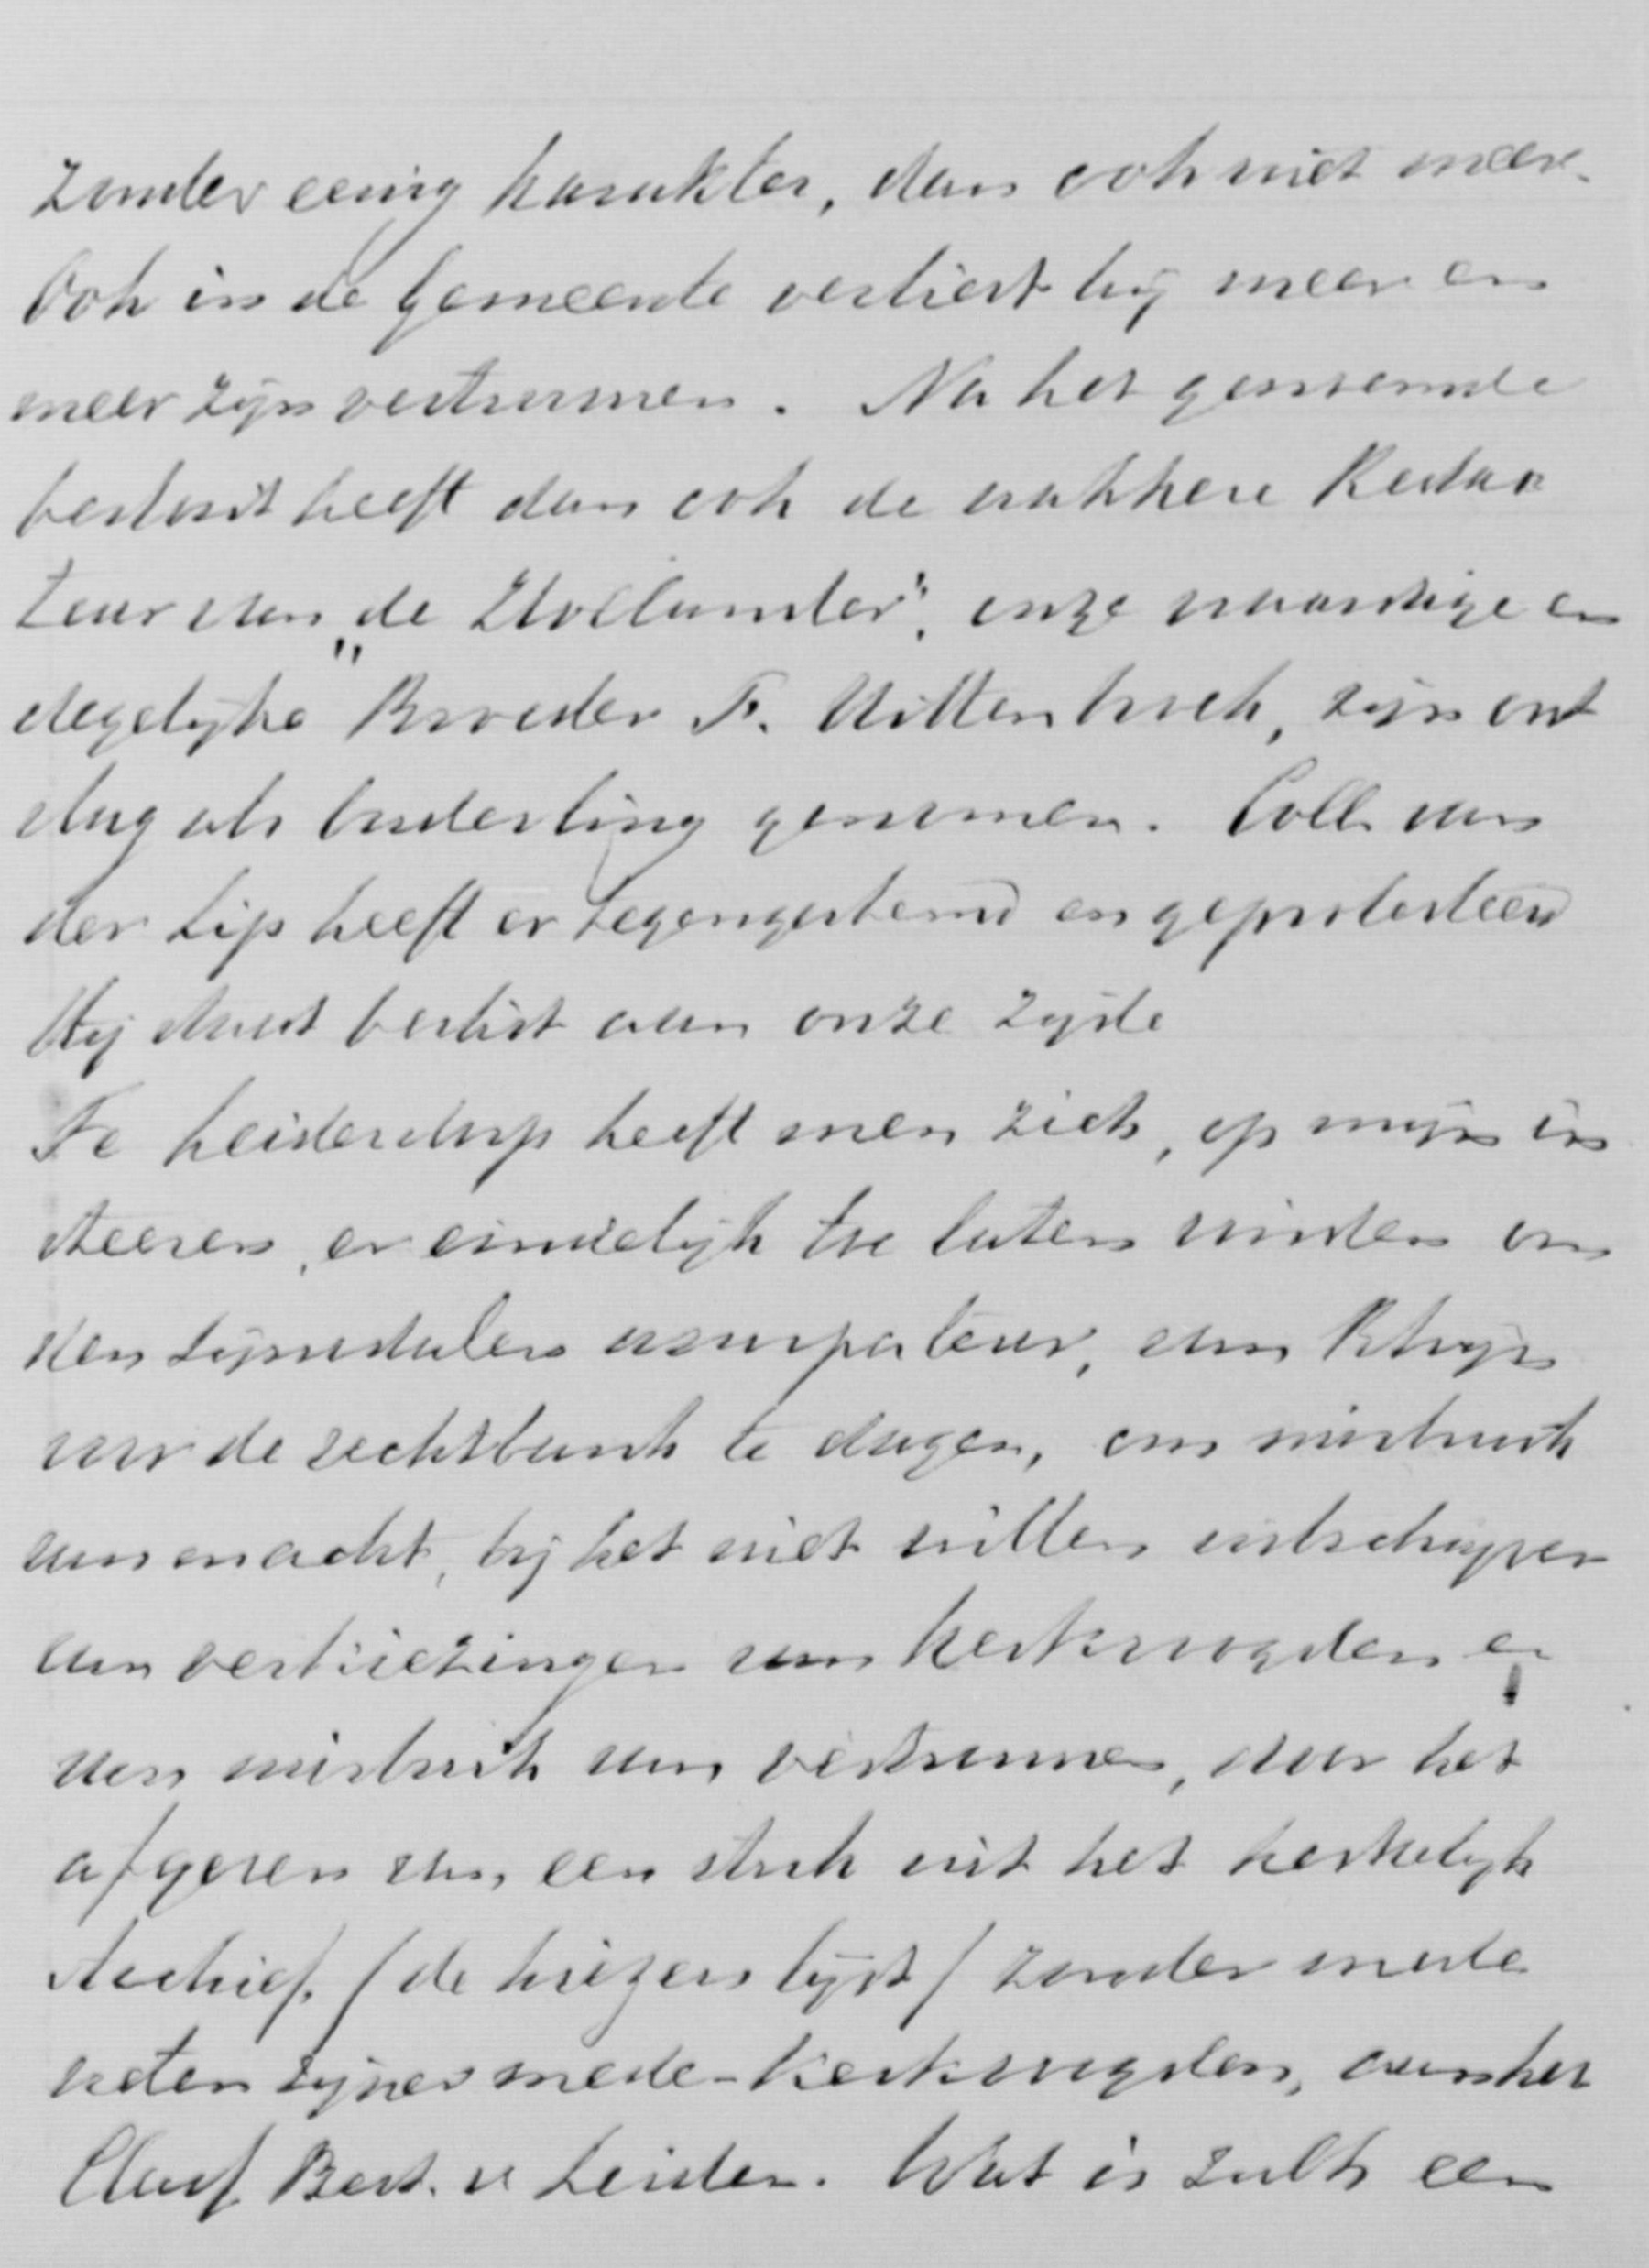 zonder eenig karakter, dan ook niet meer.
Ook in de Gemeente verliest hij meer en
meer zijn vertrouwen. Na het genoemde
besluit heeft dan ook de wakkere Redac
teur van „de Hollander", onze waardige en
degelijke Broeder F. Uittenbroek, zijn ont
slag als Ouderling genomen. Coll. van
der Lip heeft er tegengestemd en geprotesteerd
Hij staat beslist aan onze zijde
Te Leiderdorp heeft men zich, op mijn in
steeren, er eindelijk toe laten vinden om
den Synodalen usurpateur, van Rhijn
voor de rechtbank te dagen, om misbruik
van macht, bij het niet willen inschrijven
van verkiezingen van Kerkvoogden en
van misbruik van vertrouwen, door het
afgeven van een stuk uit het kerkelijk
Archief. (de kiezers lijst) zonder mede
weten zijner mede-Kerkvoogden, aan het
Class. Best. v. Leiden. Wat is zulk een